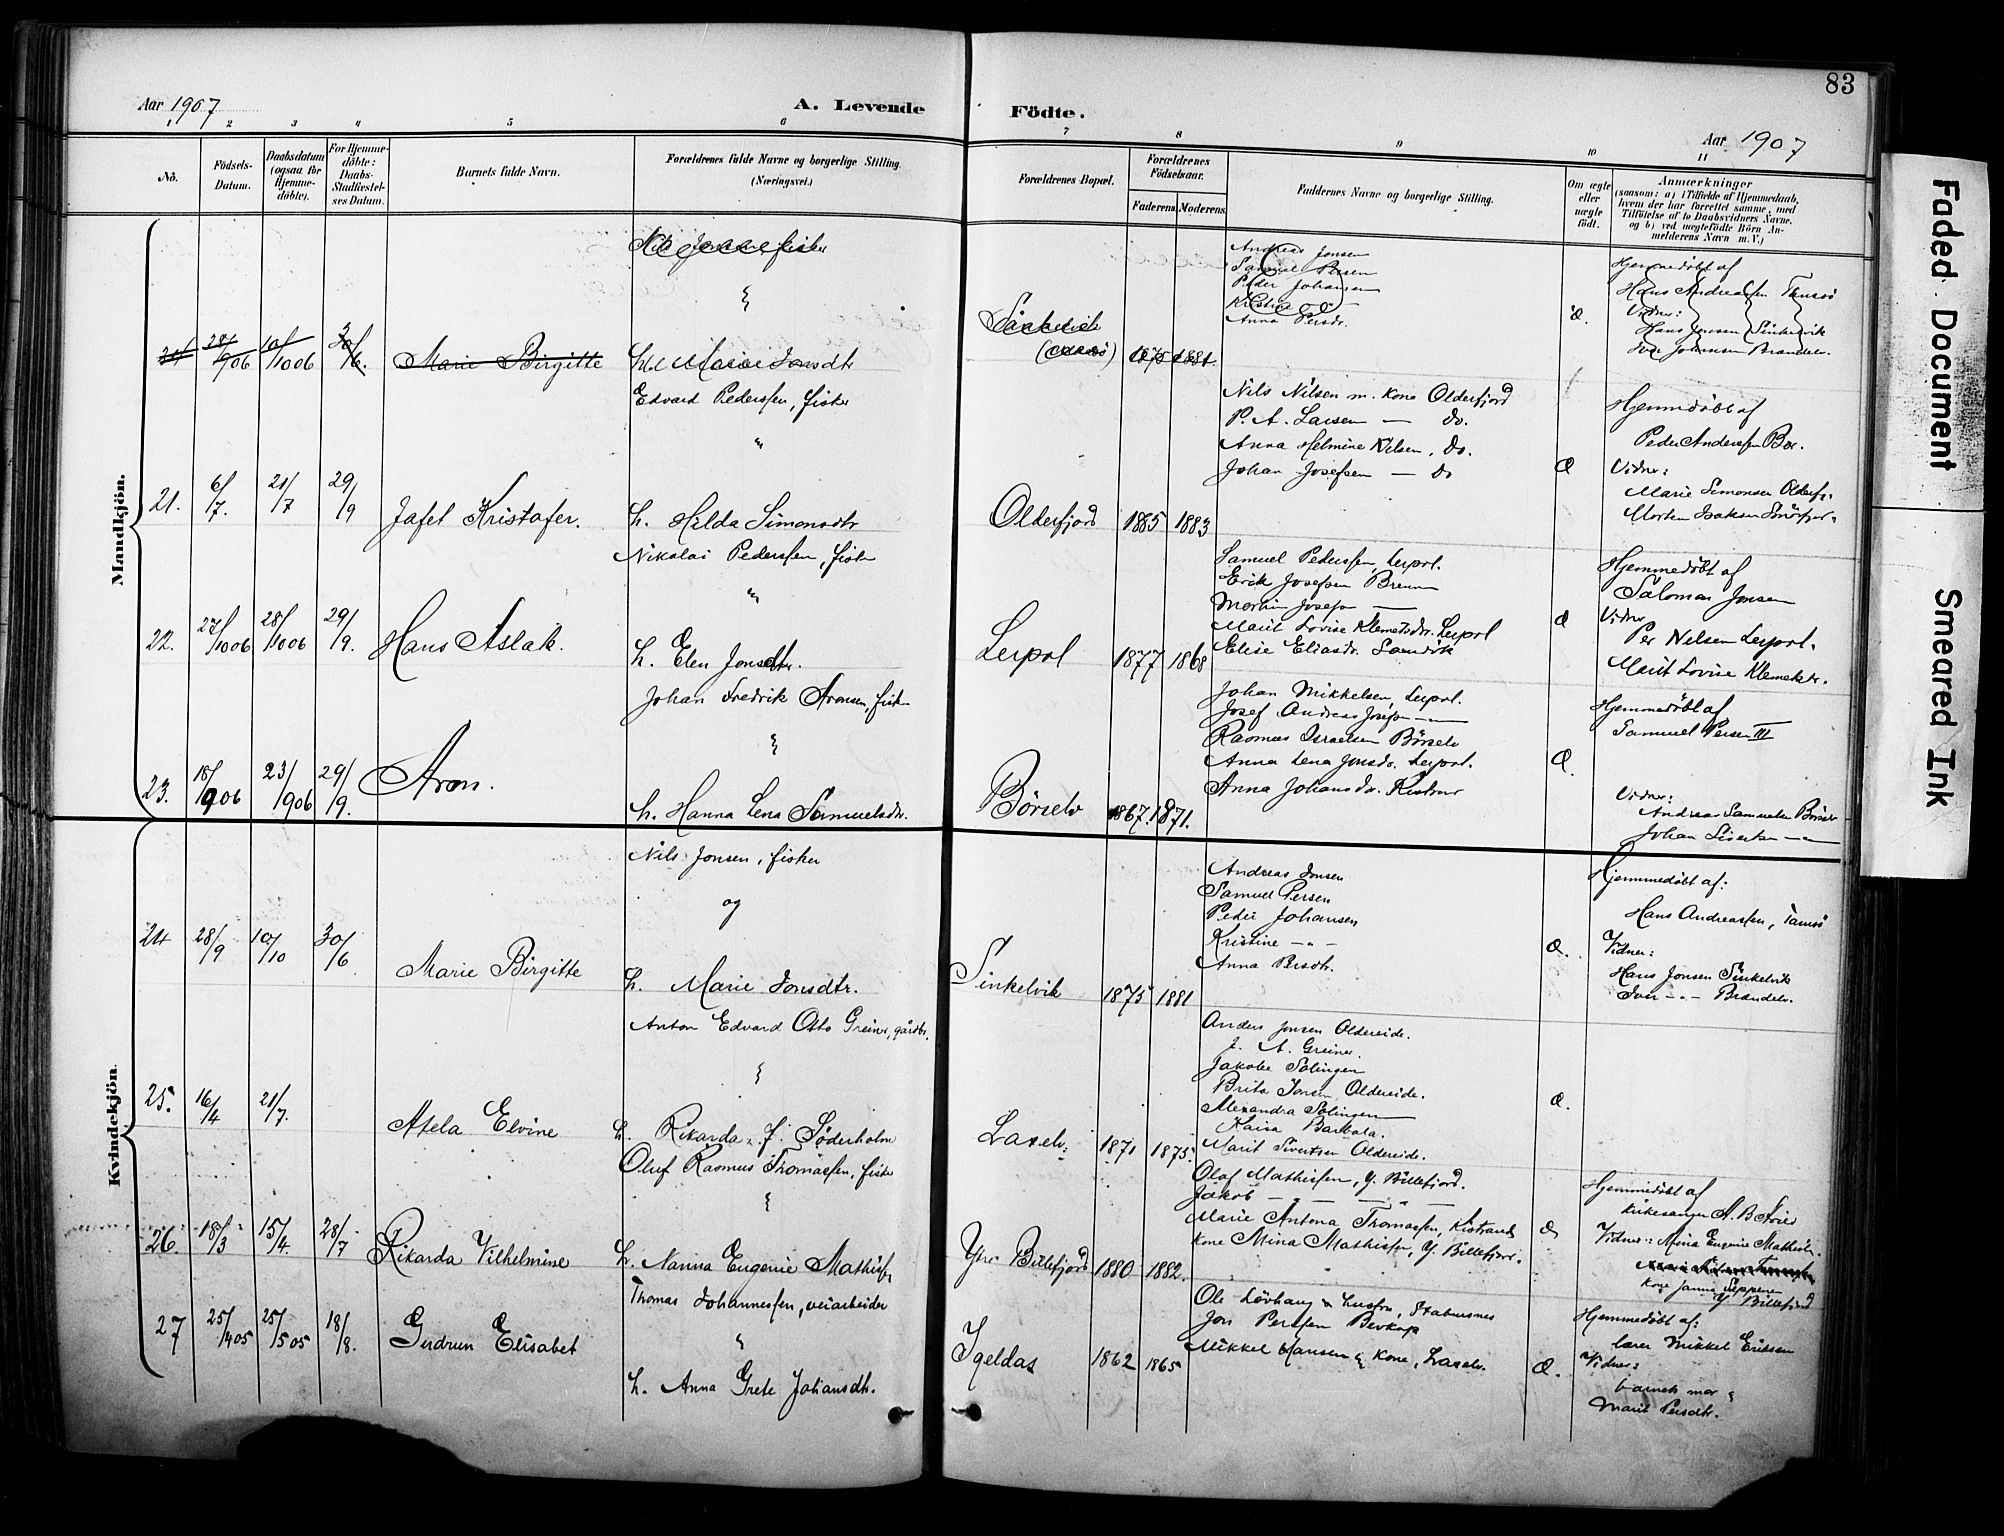 83
Aar 1907
A. Levende
Födte.
Aar 1907
1 2 3 4 5 6 7 8 9 10 11
No.
Födsels-
Datum.
Daabsdatum
(ogsaa for
Hjemme-
döbte).
For Hjemme-
döbte:
Daabs-
Stadfæstel-
ses Datum.
Barnets fulde Navn.
Forældrenes fulde Navne og borgerlige Stilling.
(Næringsvei.)
Forældrenes Bopæl.
Forældrenes
Födselsaar.
Faderens Moderens
Faddernes Navne og borgerlige Stilling.
Om ægte
eller
uægte
födt.
Anmærkninger
(saasom: a) i Tilfælde af Hjemmedaab,
hvem der har forrettet samme, med
Tilföielse af to Daabsvidners Navne.
og b) ved uægtefödte Börn An-
melderens Navn m. V.)
Mandkjön.
Nils Jonsen fisker
28/906 10/1006 30/6. Marie Birgitte
Marie Jonsdtr
1875 1881.
Andreas Jonsen
Samuel Persen
Peder Johansen
Kristine
Anna Persdr.
Æ.
Hjemmedöbt af
Hans Andreassen Tamsö
Vidner:
Hans Jonsen Sinkelvik
Iver Johansen Brandelv.
21. 6/7. 21/7 29/9 Jafet Kristofer.
Edvard Pederssen, fisker
"
h. Hilda Simonsdtr
Olderfjord 1885 1883
Nils Nilsen m. kone Olderfjord
P. A. Larsen — do.
Anna Helmine Nilsen, do.
Johan Josefsen — do
Æ
Hjemmedöbt af
Peder Anderssen Bær.
Vidner:
Marie Simonsen Olderfj.
Morten Isaksen Smörfjor.
22. 27/1006 28/1006 29/9. Hans Aslak.
Nikolai Pederssen, fisker
"
h. Elen Jonsdtr.
Leirpol 1877 1868
Samuel Pederssen, Leirpol.
Erik Josefsen Brenn
Martin Josefsen —
Marit Lovise Klemetsdr. Leirpol
Elise Eliasdr. Sandvik
Æ
Hjemmedöbt af
Salomon Jonsen
Vidner
Per Nilsen Leirpol.
Marit Lovise Klemetsdr.
23. 18/906 23/906 29/9. Aron.
Johan Fredrik Aronsen, fisker
h. Hanna Lena Samuelsdr.
Börselv 1867. 1871.
Johan Mikkelsen, Leirpol.
Josef Andreas Josefsen — " —
Rasmus Israelsen Börselv
Anna Lena Jonsdr. Leirpol.
Anna Johansdr. Kistrand
Æ.
Hjemmedöbt af
Samuel Persen III
Vidner:
Andreas Samuelsen Börselv
Johan Sivertsen — " —
Kvindekjön.
24 28/9 10/10 30/6 Marie Birgitte
Nils Jonsen, fisker
og
h. Marie Jonsdtr.
Sinkelvik 1875 1881
Andreas Jonsen
Samuel Persen
Peder Johansen
Kristine — " —
Anna Persdtr.
Æ.
Hjemmedöbt af:
Hans Andreassen, Tamsö
Vidner:
Hans Jonsen Sinkelvik
Iver — " — Brandelv.
25. 16/4 21/7. Atela Elvine
Anton Edvard Otto Greiner, gårdbr.
h. Rikarda f. Söderholm
Laxelv. 1871 1875.
Anders Jonsen Oldereide.
J. A. Greiner.
Jakobe Solingen
Brita Jonsen, Oldereide.
Alexandra Solingen
Kaisa Barbala.
Marit Sivertsen Oldereide.
Æ.
26. 18/3 15/4. 28/7 Rikarda Vilhelmine
Oluf Rasmus Thomassen, fisker
h. Nanna Eugenie Mathissen
Ytre Billefjord 1880 1882.
Olaf Mathissen, Y. Billefjord.
Jakob — " — " —
Marie Antona Thomassen, Kistrand
Kone Mina Mathissen, Y. Billefjord.
Æ
Hjemmedöbt af
kirkesanger A. B.
Vidner: Mina Eugenie Mathissen.
kone Janna Seppenen
Y. Billefjord
27 25/405 25/505 18/8. Gudrun Elisabet
Thomas Johannessen, veiarbeider
"
h. Anna Grete Johansdtr.
Igeldas 1862 1865
Ole Lövhaug & hustru, Stabursnes
Jon Perssen Bevkop
Mikkel Hansen & kone, Laxelv.
Æ.
Hjemmedöbt af:
lærer Mikkel Eriksen
Vidner:
barnets mor &
Marit Persdtr.
Faded Document
Smeared Ink